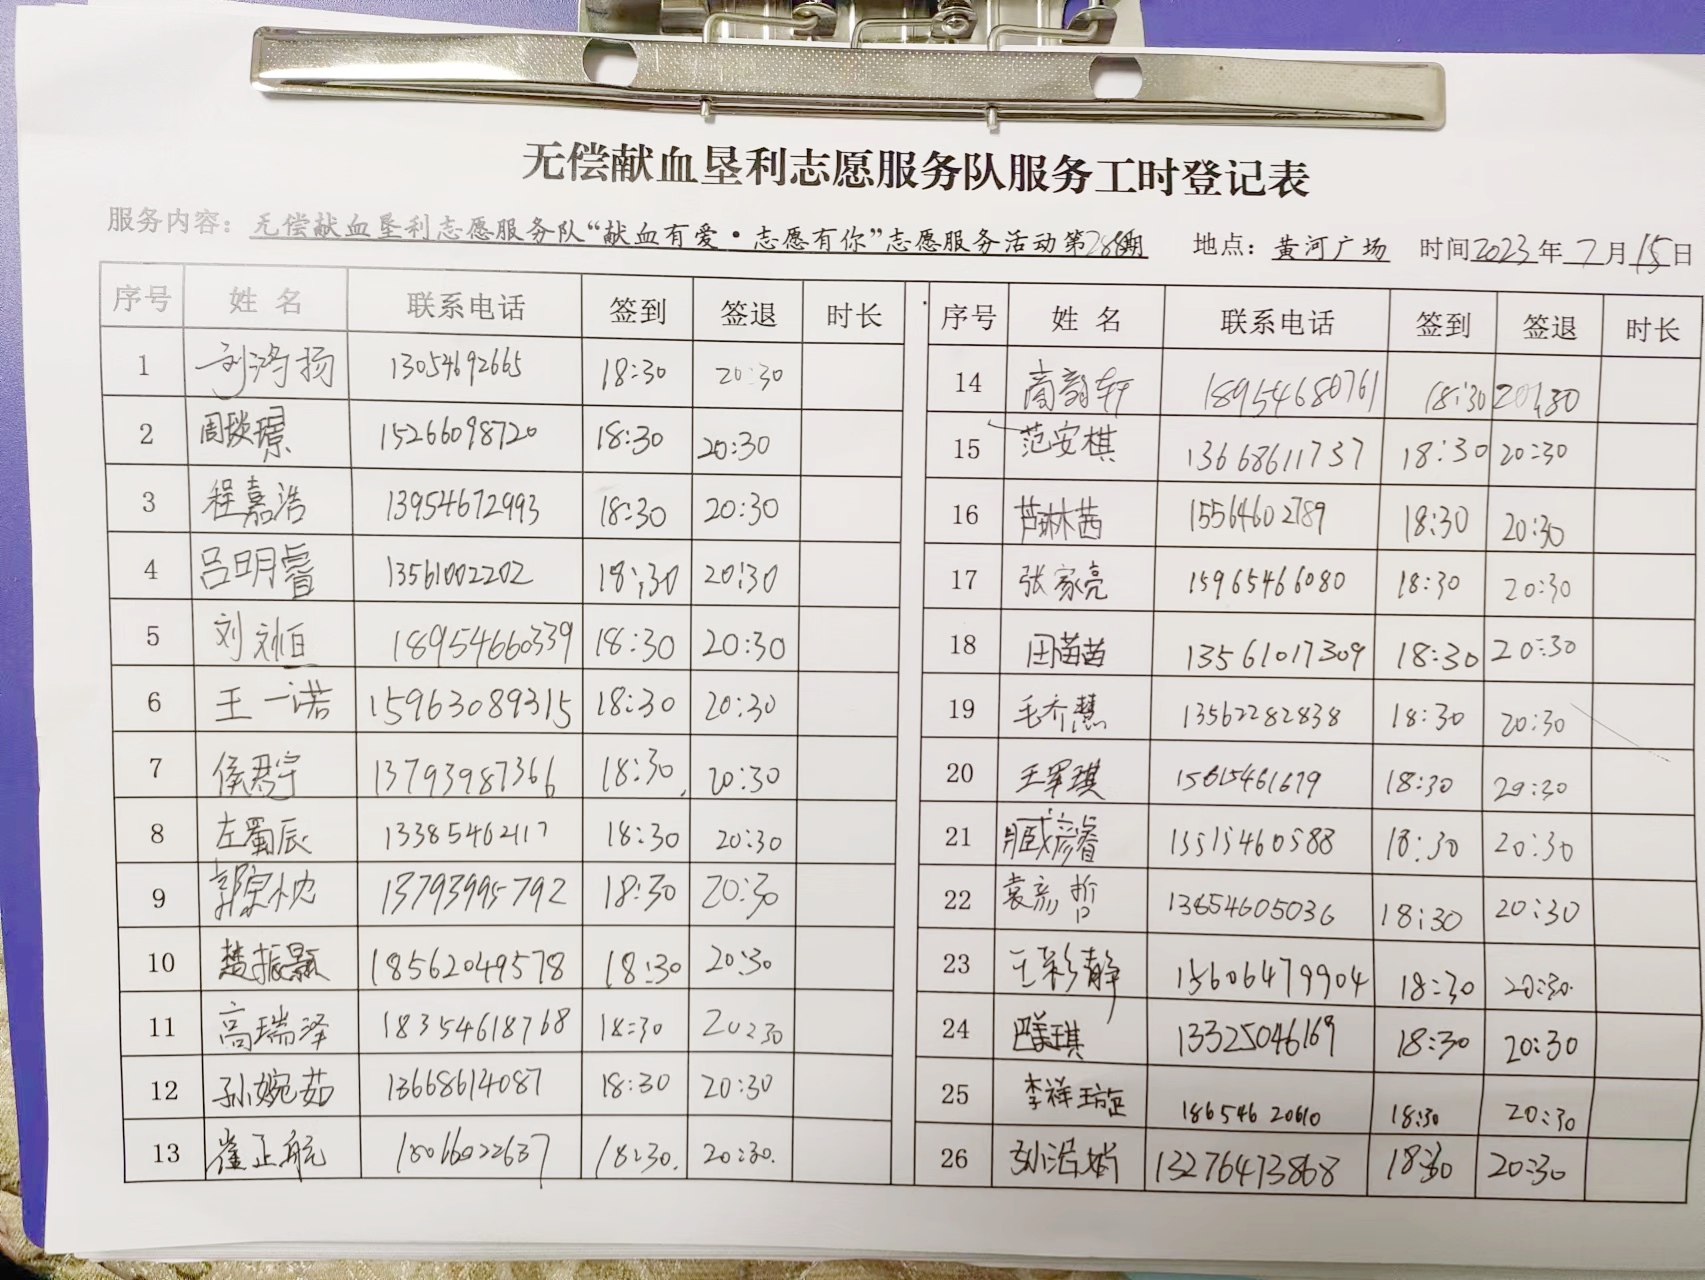 无偿献血垦利志愿服务队服务工时登记表
服务内容：无偿献血垦利志愿服务队“献血有爱·志愿有你”志愿服务活动第期 地点：黄河广场 时间2023年7月15日
序号 姓名 联系电话 签到 签退 时长 序号 姓名 联系电话 签到 签退 时长
1 刘鸿扬 13054692665 18:30 20:30 14 高韵轩 18954680761 18:30 20:30
2 周琰璟 15266098720 18:30 20:30 15 范安棋 13668611737 18:30 20:30
3 程嘉浩 13954672993 18:30 20:30 16 芦琳茜 15564602789 18:30 20:30
4 吕明睿 13561002202 18:30 20:30 17 张家亮 15965466080 18:30 20:30
5 刘 18954660339 18:30 20:30 18 田苗苗 13561017309 18:30 20:30
6 王一诺 15963089315 18:30 20:30 19 毛乔慧 13562282838 18:30 20:30
7 侯君宇 13793987366 18:30 20:30 20 王琪 18:30 20:30
8 左蜀辰 13385462117 18:30 20:30 21 臧彦睿 15515460588 18:30 20:30
9 郭 13793995792 18:30 20:30 22 袁彪哲 18:30 20:30
10 楚振颢 18562049578 18:30 20:30 23 王彩静 15606479904 18:30 20:30
11 高瑞泽 18354618768 18:30 20:30 24 琪 13325046169 18:30 20:30
12 孙婉茹 13668614087 18:30 20:30 25 李祥璇 18654620610 18:30 20:30
13 崔正航 18066022637 18:30 20:30 26 孙浩 13276473868 18:30 20:30